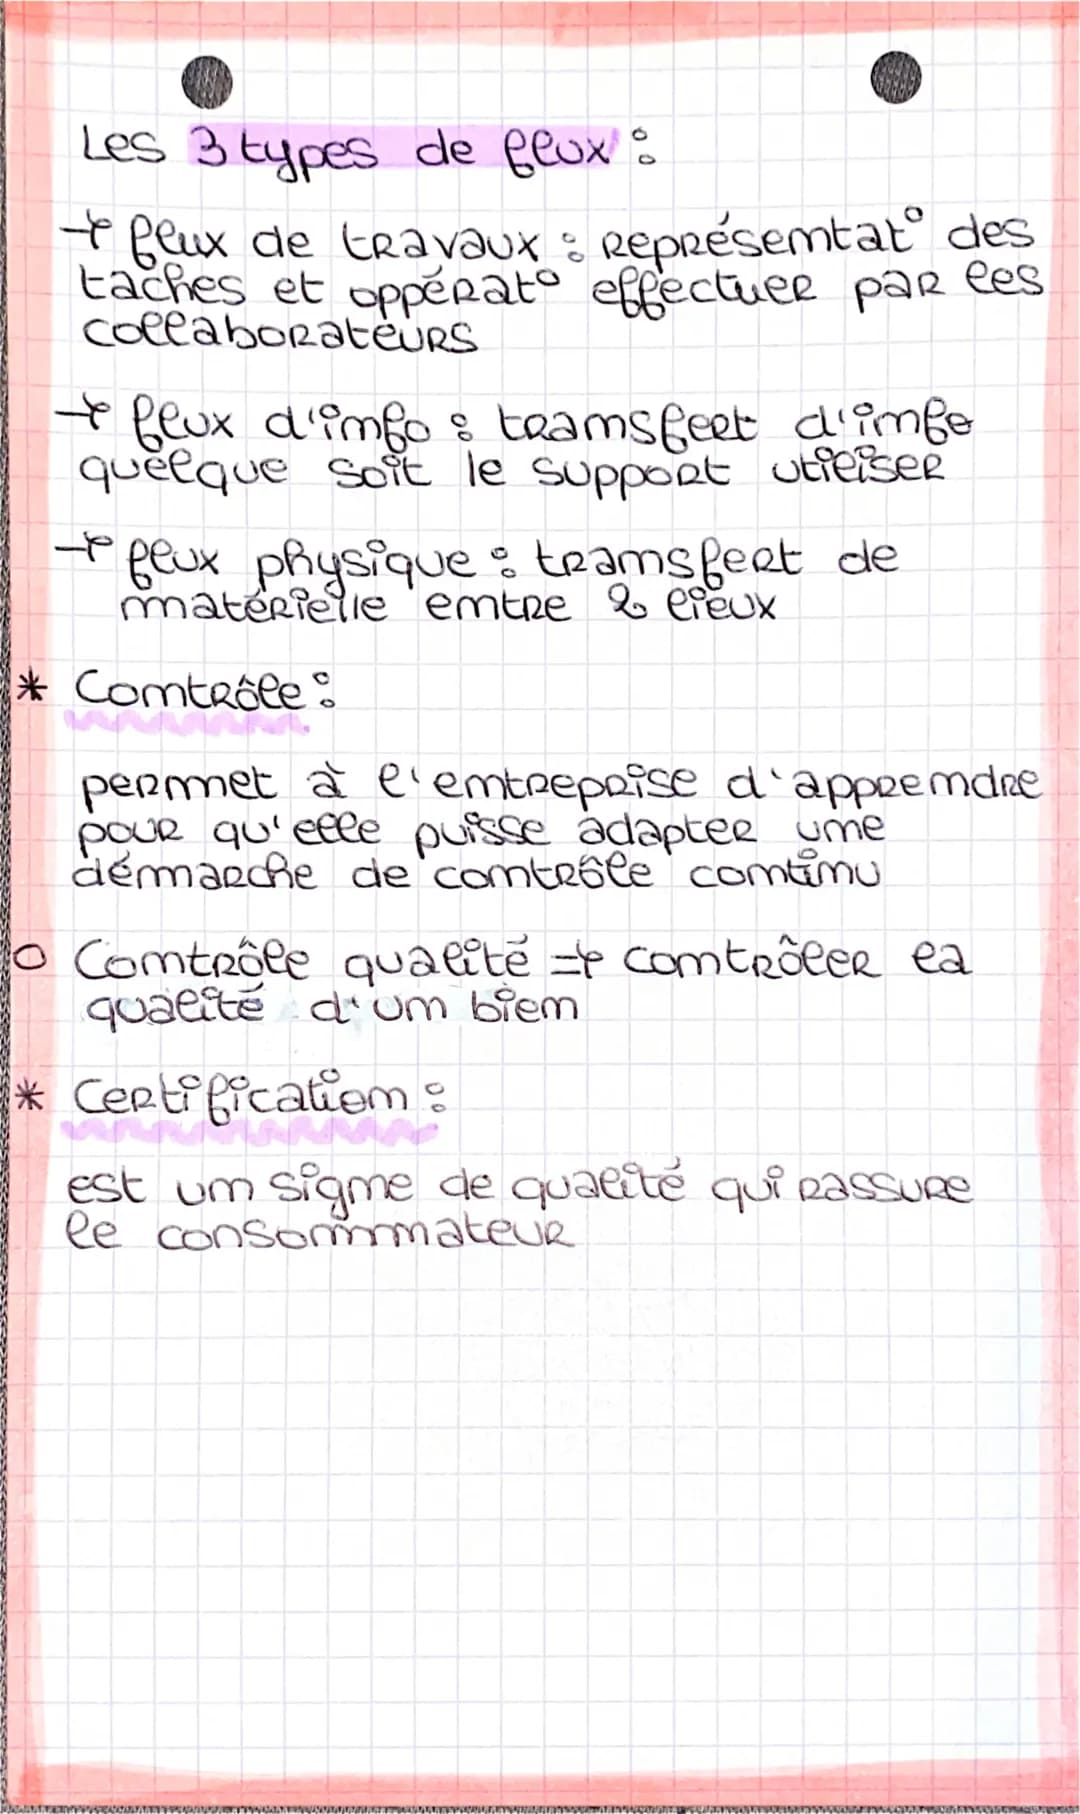 Les 3 types de flux :
→ flux de travaux : représentat° des
taches et oppérat° effectuer par les
collaborateurs
→ flux d'info : transfert d'info
quelque soit le support utiliser
→ flux physique : transfert de
matérielle entre 2 lieux
* Contrôle :
permet à l'entreprise d'apprendre
pour qu'elle puisse adapter une
démarche de contrôle continu
o Contrôle qualité => contrôler la
qualité d'un bien
* Certification :
est un signe de qualité qui rassure
le consommateur